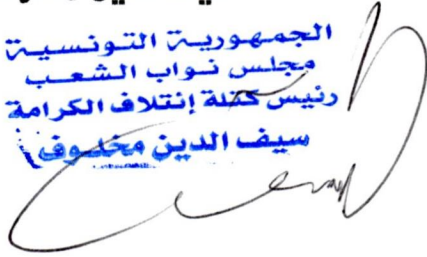 الجمهورية التونسية
مجلس نواب الشعب
رئيس كتلة إئتلاف الكرامة
سيف الدين مخلوف